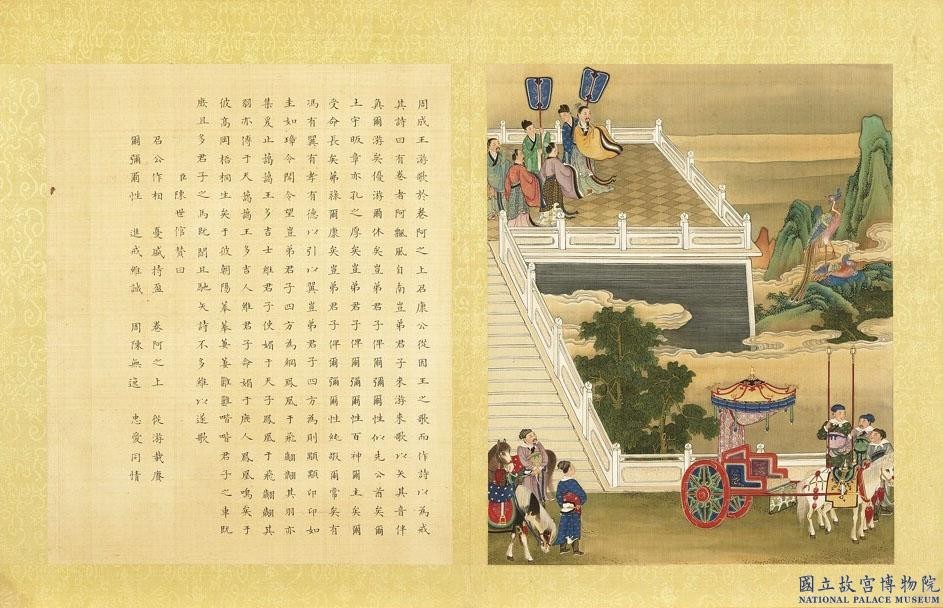 周成王游歌於卷阿之上召康公從因王之歌而作詩以為戒
其詩曰有卷者阿飄風自南豈弟君子來游來歌以矢其音伴
奐爾游矣優游爾休矣豈弟君子俾爾彌爾性似先公酋矣爾
土宇昄章亦孔之厚矣豈弟君子俾爾彌爾性百神爾主矣爾
受命長矣茀祿爾康矣豈弟君子俾爾彌爾性純嘏爾常矣有
馮有翼有孝有德以引以翼豈弟君子四方為則顒顒卬卬如
圭如璋令聞令望豈弟君子四方為綱鳳凰于飛翽翽其羽亦
集爰止藹藹王多吉士維君子使媚于天子鳳凰于飛翽翽其
羽亦傅于天藹藹王多吉人維君子命媚于庶人鳳凰鳴矣于
彼高岡梧桐生矣于彼朝陽菶菶萋萋雝雝喈喈君子之車既
庶且多君子之馬既閑且馳矢詩不多維以遂歌
臣陳世倌贊曰
召公作相 憂盛持盈 卷阿之上 從游載賡
爾彌爾性 進戒維誠 周陳無逸 忠愛同情
國立故宮博物院
NATIONAL PALACE MUSEUM